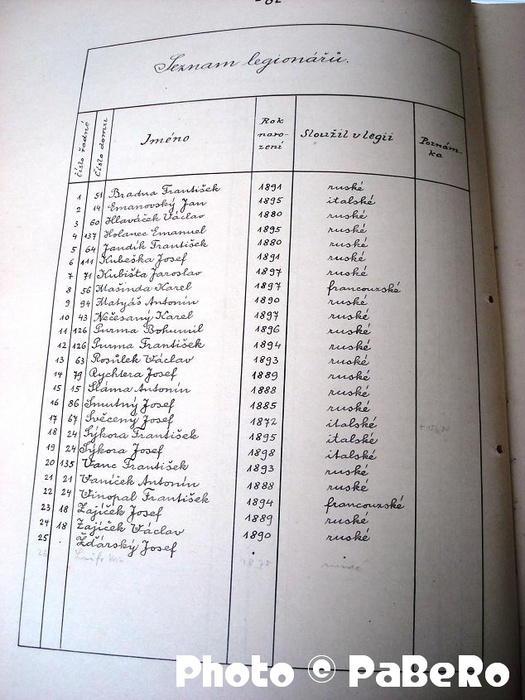 Seznam legionářů.
Číslo řadné Číslo domu Jméno Rok naro- zení Sloužil v legii Poznám- ka
1 51 Bradna František 1891 ruské
2 14 Emanovský Jan 1895 italské
3 60 Hlaváček Václav 1880 ruské
4 137 Holanec Emanuel 1895 ruské
5 64 Jandík František 1880 ruské
6 111 Kubeška Josef 1891 ruské
7 71 Kubišta Jaroslav 1897 ruské
8 56 Mašinda Karel 1897 francouzské
9 94 Matyáš Antonín 1890 ruské
10 43 Nečesaný Karel 1897 ruské
11 126 Purma Bohumil 1896 ruské
12 126 Purma František 1894 ruské
13 63 Rosůlek Václav 1893 ruské
14 79 Rychtera Josef 1889 ruské
15 15 Sláma Antonín 1888 ruské
16 86 Smutný Josef 1885 ruské
17 67 Svěcený Josef 1872 italské
18 24 Sýkora František 1895 italské
19 24 Sýkora Josef 1898 italské
20 135 Vanc František 1893 ruské
21 21 Vaníček Antonín 1888 ruské
22 24 Vinopal František 1894 francouzské
23 18 Zajíček Josef 1889 ruské
24 18 Zajíček Václav 1890 ruské
25 Žďárský Josef
Photo © PaBeRo